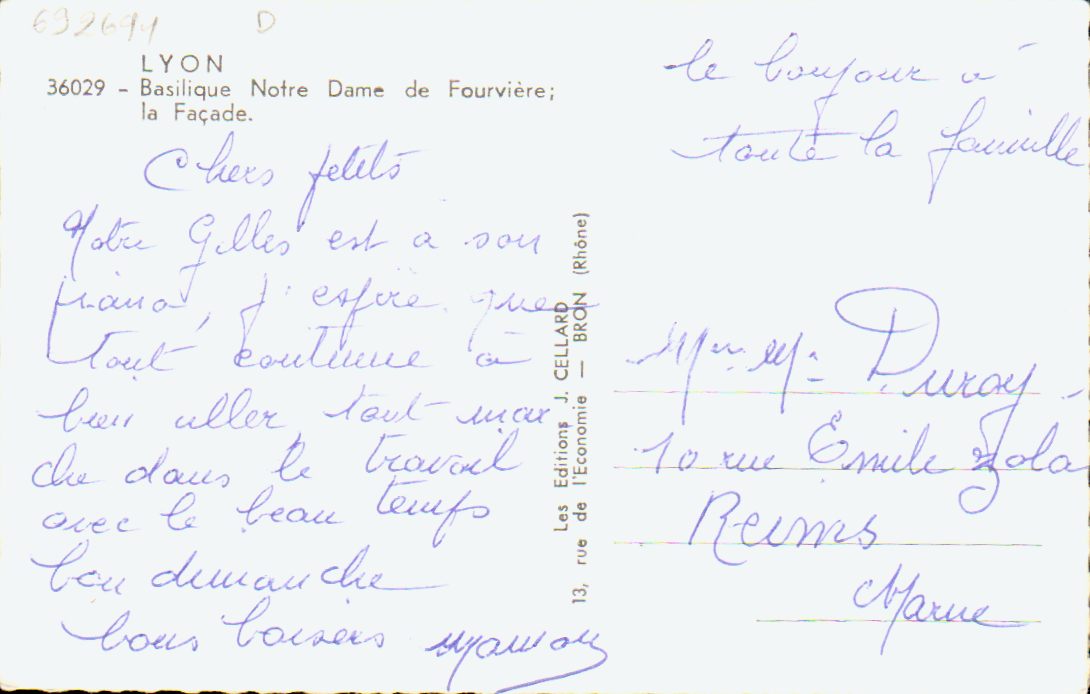 692691 D
LYON
36029 - Basilique Notre Dame de Fourvière;
la Façade.
Chers petits
Notre Gilles est a son
piano, j'espère que
tout continue à
bien aller, tout mar
che dans le travail
avec le beau temps
bon dimanche
bons baisers maman
le bonjour à
toute la famille
Les Editions J. CELLARD
13, rue de l'Economie — BRON (Rhône)
Mr Me Duroy
10 rue Emile Zola
Reims
Marne